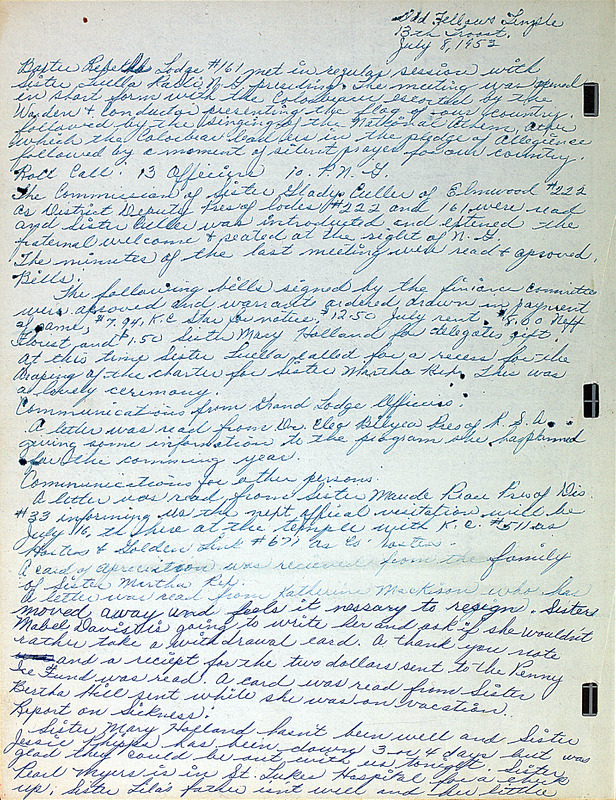 Odd Fellows Temple
13th Troost.
July 8, 1953
Lodge #161 met in regular session with
Sister Luella N.G. presiding. The meeting was opened
in short form with the Colorbearer escorted by the
Warden & Conductor presenting the flag of our country,
followed by the singing of the National Athem, after
which the Colorbearer lead us in the pledge of Allegience
followed by a moment of silent prayer for our country.
Roll Call: 13 Officers 10. P. N. G.
The Commission of Sister Gladys Culler of Elmwood #222
as District Deputy Pres of lodes #222 and 161 were read
and Sister Culler was introduced and extened the
fraternal welcome & seated at the right of N. G.
The minutes of the last meeting were read & aproved.
Bills:
The following bills signed by the finance committee
were aproved and warrants ordered drawn in payment
of same, $7.94, K.C. notice. $12.50 July rent. $5.60
Florist and $1.50 Sister Mary Holland for delegates gift.
At this time Sister Luella called for a recess for the
draping of the charter for Sister Martha This was
a lovely ceremony.
Communications from Grand Lodge Officers:
A letter was read from Dr. Cleo Pres of R. S. A.
giving some information to the program she has planned
for the comming year.
Communications for other persons:
A letter was read from Sister Maude Pres of Dis.
#33 informing us the next offical visitation will be
July 16, th here at the temple with K. C. #511 as
Hostess & Golden Link #671 as Co hostess.
A card of apreciation was recieved from the family
of Sister Martha
A letter was read from Katherine Mackison who has
moved away and feels it nessary to resign. Sister
Mabel Davis is going to write her and ask if she wouldnt
rather take a withdrawal card. A thank you note
and a recipt for the two dollars sent to the Penny
Ice Fund was read. A card was read from Sister
Bertha Hill sent while she was on vacation.
Report on Sickness:
Sister Mary Holland hasn't been well and Sister
Jessie Phipps has been down 3 or 4 days but was
glad they could be out with us tonight. Sister
Pearl Myers is in St. Lukes Hospital for a check
up; Sister Lila's father isn't well and her little